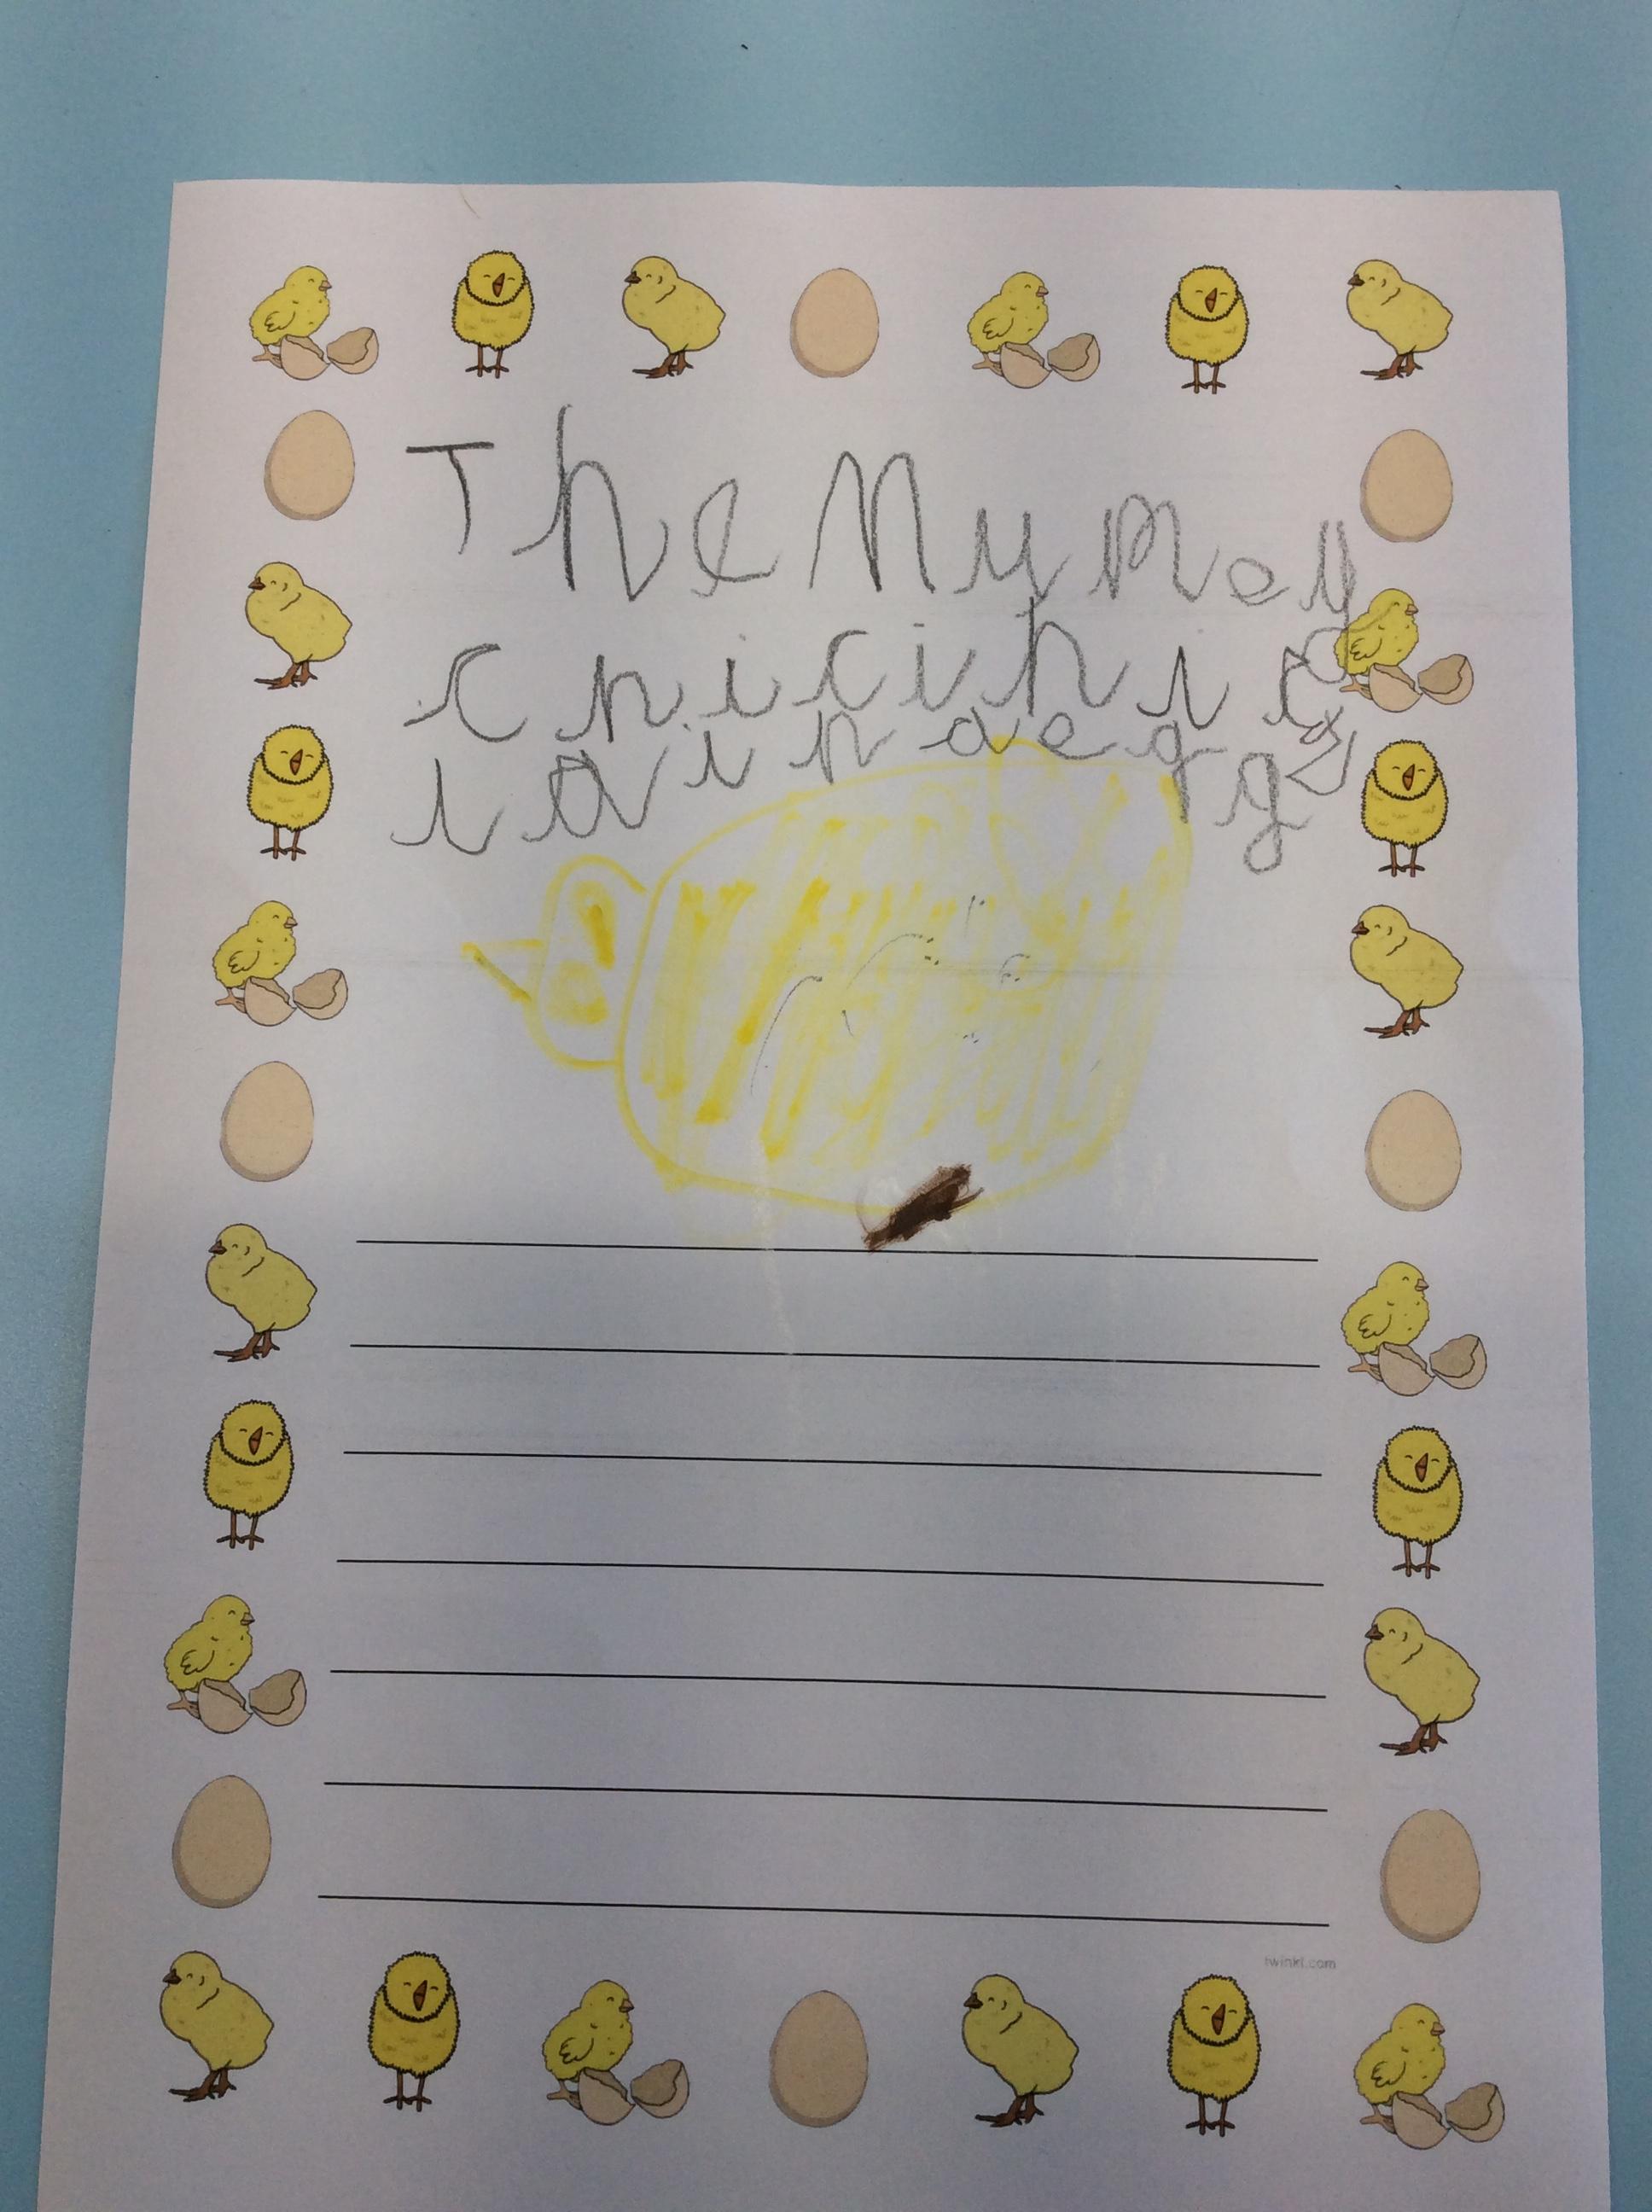 The Mumey
chicih is
lain a eggs
twinkl.com